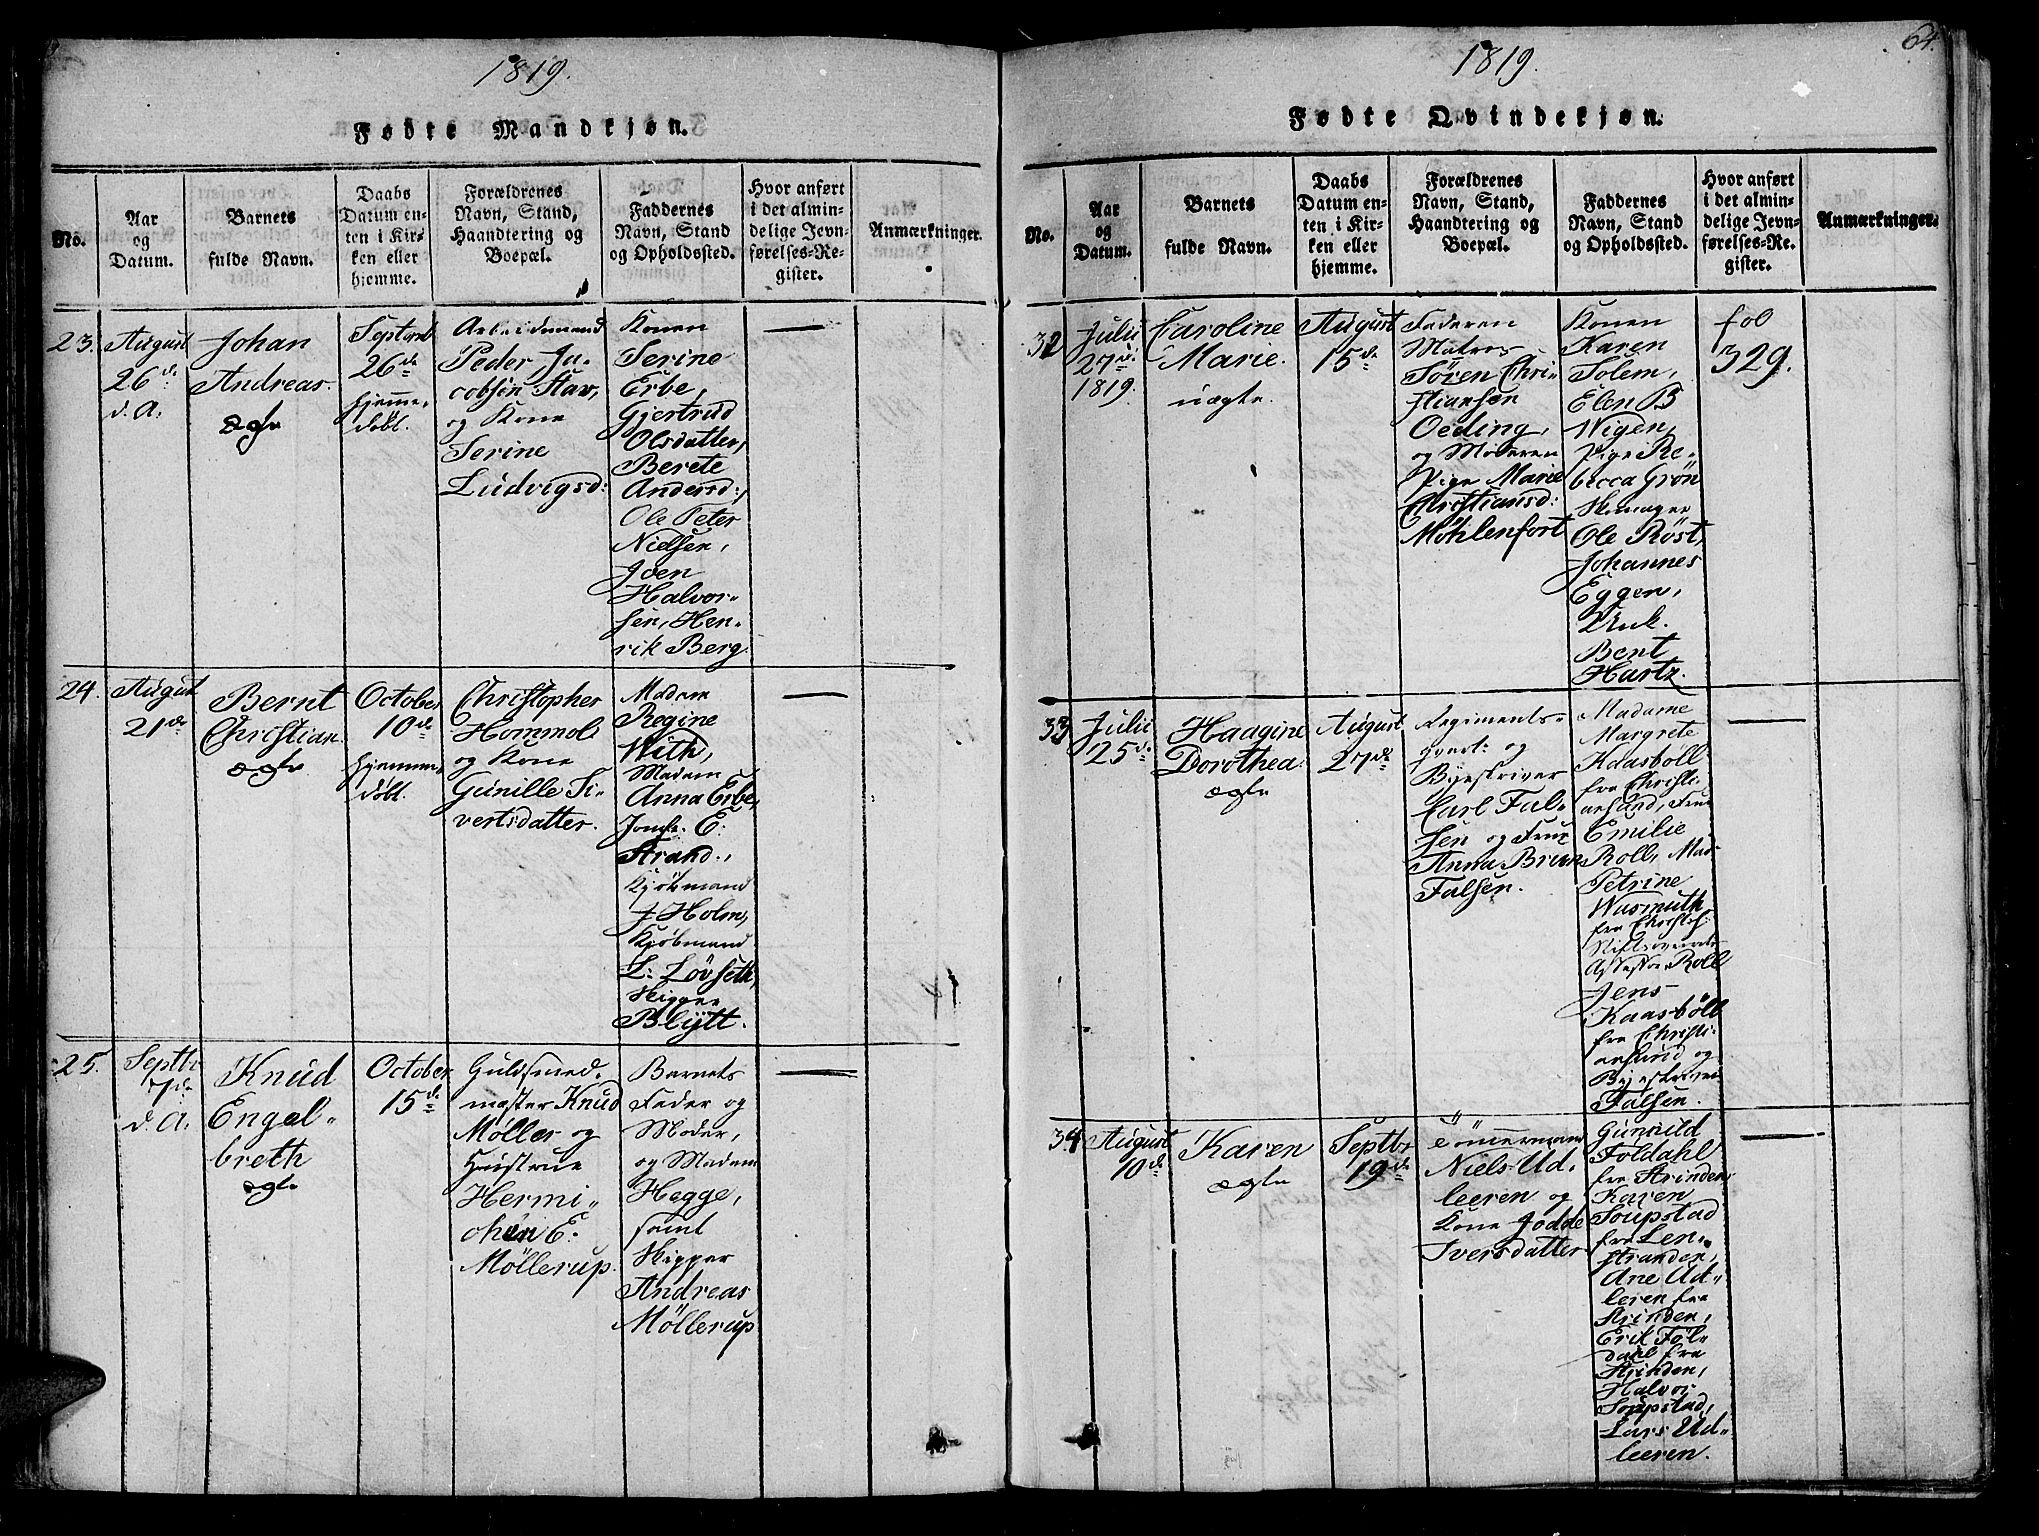 1819.
Fødte Mandkjøn.
No.
Aar
og
Datum.
Barnets
fulde Navn.
Daabs
Datum en-
ten i Kir-
ken eller
hjemme.
Forældrenes
Navn, Stand,
Haandtering og
Boepæl.
Faddernes
Navn, Stand
og Opholdssted.
Hvor anført
i det almin-
delige Jevn-
førelses-Re-
gister.
Anmærkninger.
23.
August
26de
d. A.
Johan
Andreas.
ægte
Septemb
26de
hjemme-
døbt.
Arbeidsmand
Peder Ja-
cobsen Stav,
og Kone
Serine
Ludvigsd:
Konen
Serine
Erbe,
Gjertrud
Olsdatter,
Berete
Andersd:,
Ole Peter
Nielsen,
Joen
Halvor-
sen, Hen-
rik Berg.
24.
August
21de
Bernt
Christian.
ægte
October
10de
hjemme-
døbt.
Christopher
Hommol
og Kone
Gunille Si-
vertsdatter.
Madam
Regine
With,
Madam
Anna Erbe,
Jomfr. E:
Strand,
Kjøbmand
J Holm,
Kjøbmand
L: Løvseth,
Skipper
Blÿtt.
25.
Septbr
7de
d. A.
Knud
Engel-
breth
ægte
October
15de
Guldsmed-
mæster Knud
Møller og
Hustrue
Hermi-
chen E:
Møllerup.
Barnets
Fader og
Moder,
og Madam
Hegge,
samt
Skipper
Andreas
Møllerup
64.
1819.
Fødte Qvindekjøn.
No.
Aar
og
Datum.
Barnets
fulde Navn.
Daabs
Datum en-
ten i Kir-
ken eller
hjemme.
Forældrenes
Navn, Stand,
Haandtering og
Boepæl.
Faddernes
Navn, Stand
og Opholdssted.
Hvor anført
i det almin-
delige Jevn-
førelses-Re-
gister.
Anmærkninger.
32
Julii
27de
1819.
Caroline
Marie.
uægte.
August
15de
Faderen
Matros
Søren Chri-
stiansen
Oeding,
og Moderen
Pige Marie
Christiansd:
Möhlenfort
Konen
Karen
Solem,
Elen B
Wigen,
Pige Re-
becca Grøn
Skomager
Ole Røst,
Johannes
Eggen,
Unk.
Bent
Hartz.
fol
329.
33
Julii
25de
Haagine
Dorothea.
ægte
August
27de
Regiments-
qvart: og
Byeskriver
Carl Fal-
sen og Frue
Anna Brun
Falsen.
Madame
Margrete
Kaasboll
fra Christi-
ansund, Frue
Emilie
Roll, Mad.
Petrine
Wasmuth
fra Christs:
Stiftsoverrets
Assessor Roll
Jens
Kaasbøll
fra Christi-
ansund og
Byeskriver
Falsen.
34
August
10de
Karen
ægte
Septbr
19de
Tömmermand
Niels Ud-
leeren og
Kone Jodde
Iversdatter
Gunnild
Foldahl
fra Strinden,
Karen
Soupstad
fra Len-
stranden,
Ane Ud-
leeren fra
Strinden,
Erik Fol-
dahl fra
Strinden,
Halvor
Soupstad,
Lars Ud-
leeren.